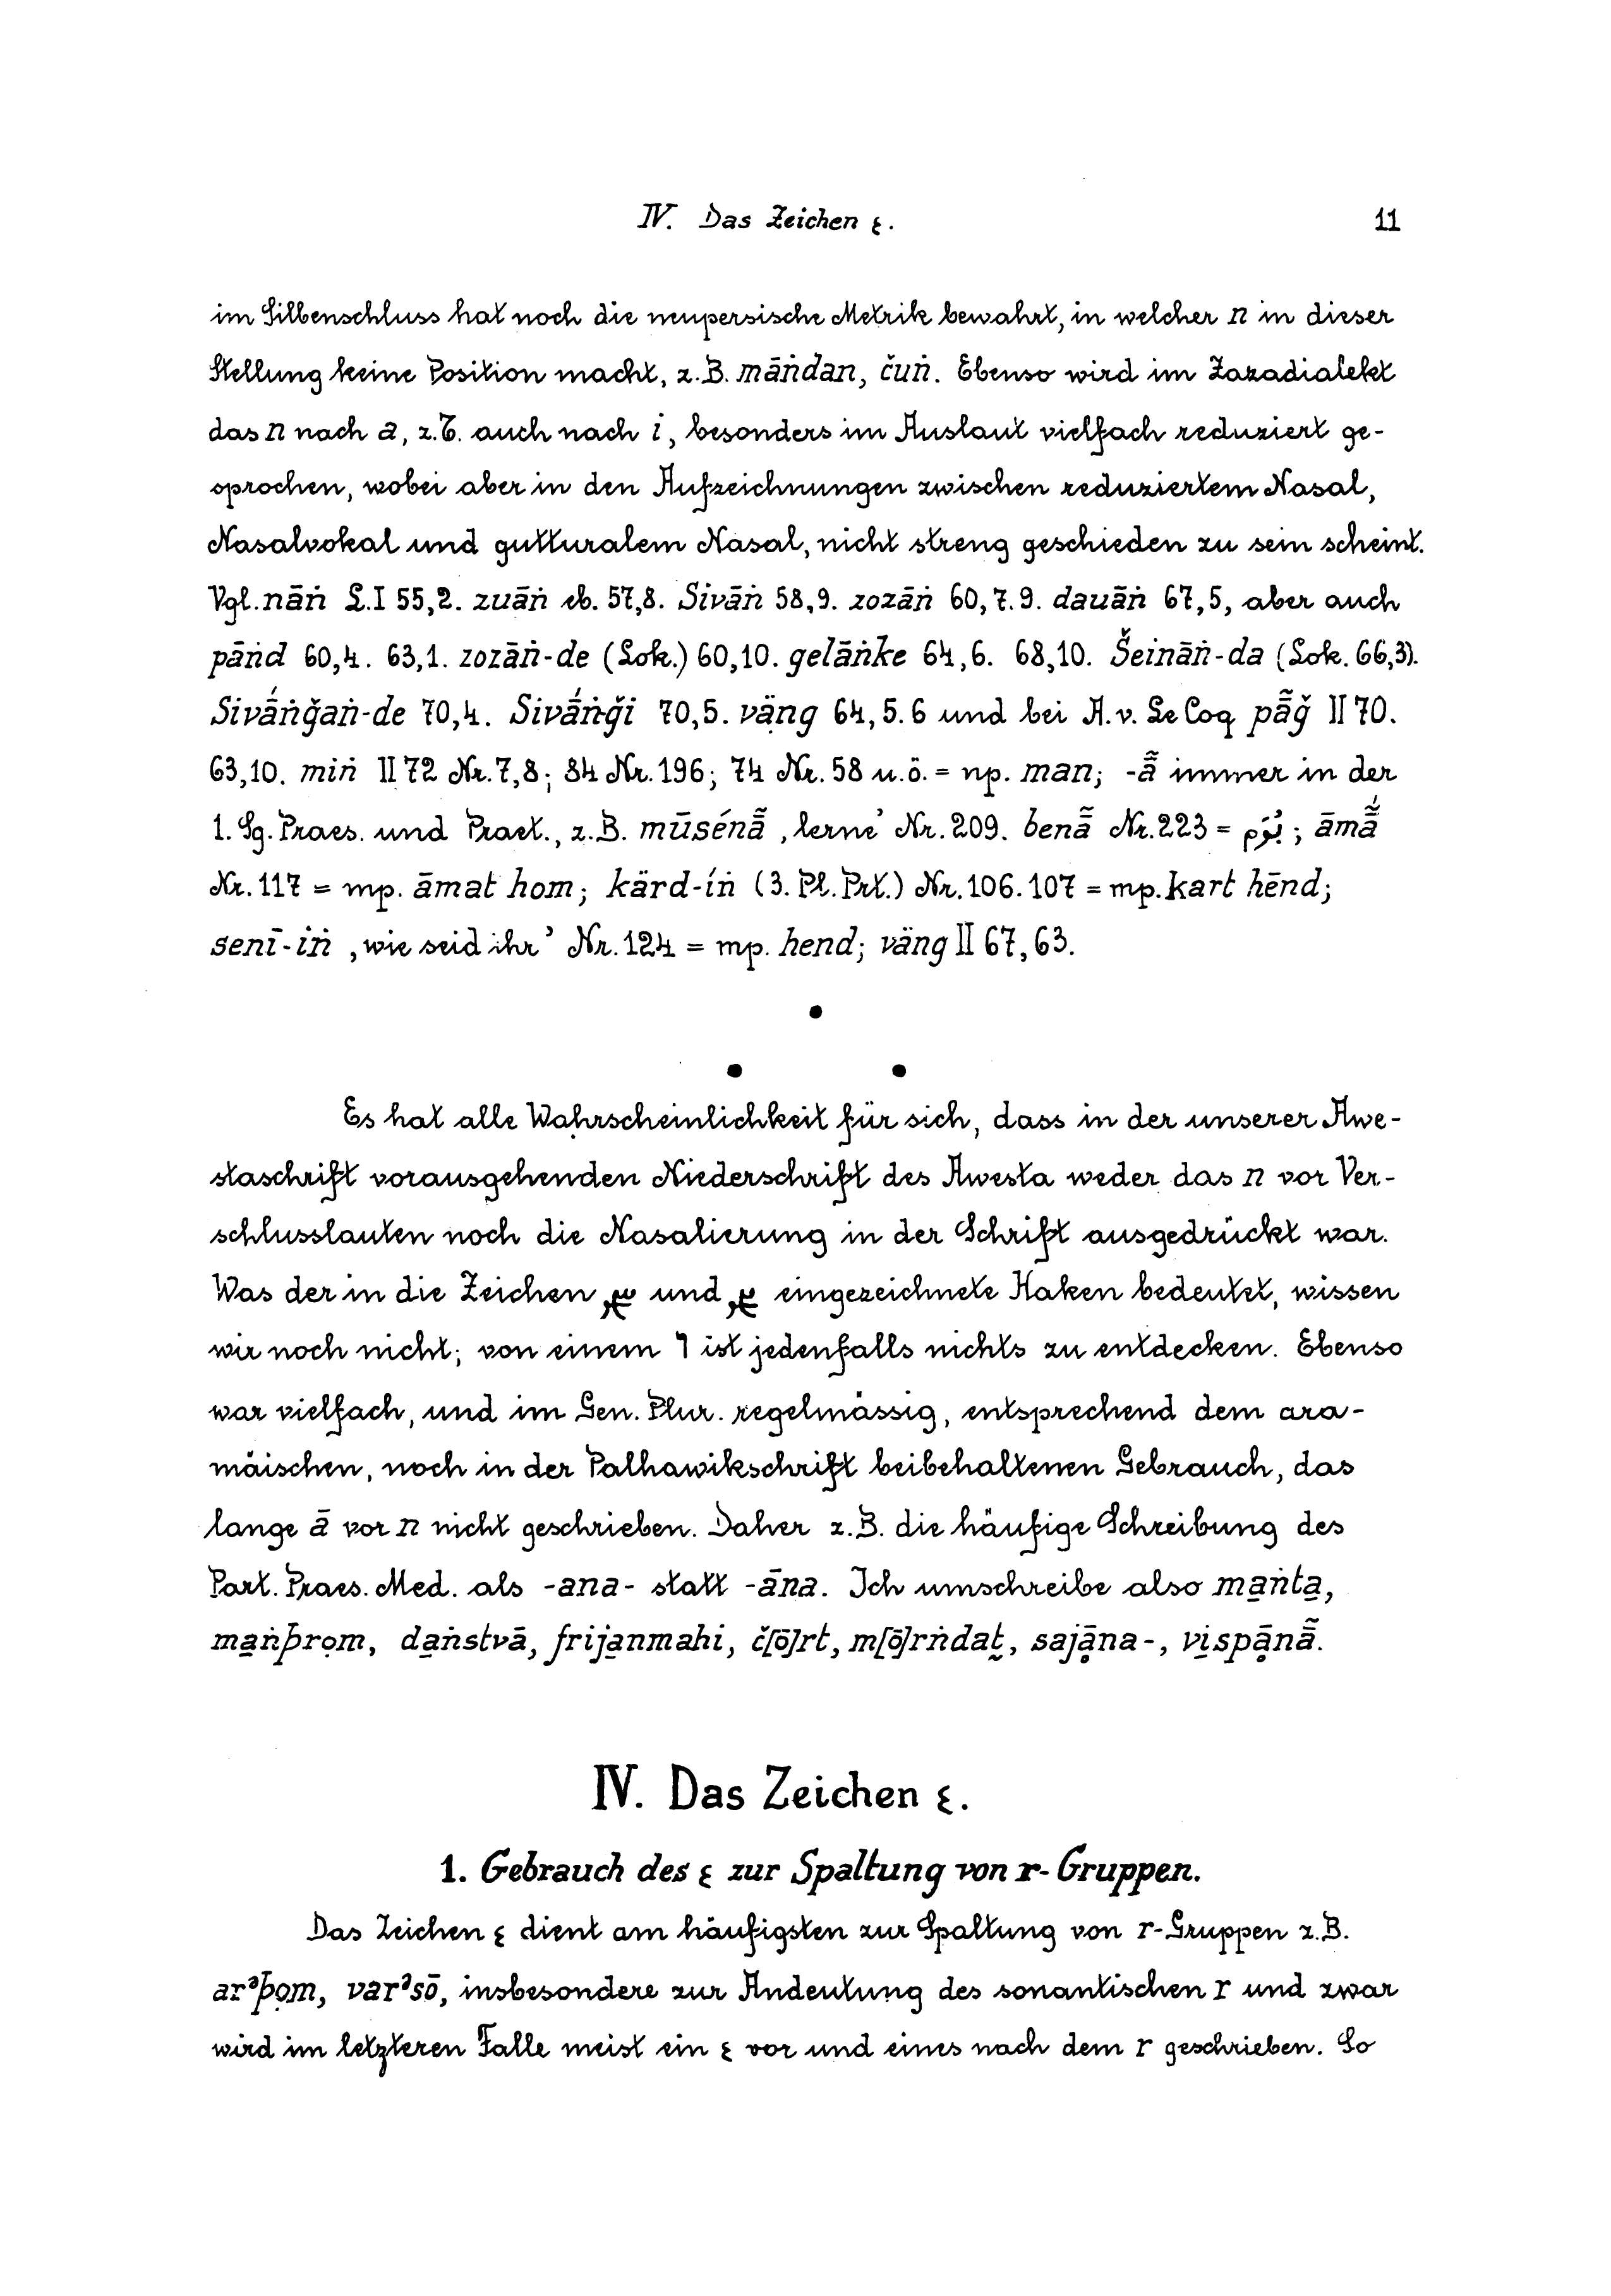 IV. Das Zeichen ε. 11
im Silbenschluss hat noch die neupersische Metrik bewahrt, in welcher n in dieser
Stellung keine Position macht, z.B. māṅdan, čuṅ. Ebenso wird im Zazadialekt
das n nach a, z.T. auch nach i, besonders im Auslaut vielfach reduziert ge-
sprochen, wobei aber in den Aufzeichnungen zwischen reduziertem Nasal,
Nasalvokal und gutturalem Nasal, nicht streng geschieden zu sein scheint.
Vgl. nāṅ L.I 55,2. zuāṅ eb. 57,8. Sivāṅ 58,9. zozāṅ 60,7.9. dauāṅ 67,5, aber auch
pāṅd 60,4. 63,1. zozāṅ-de (Lok.) 60,10. gelāṅke 64,6. 68,10. Šeināṅ-da (Lok. 66,3).
Sivā́ṅǧaṅ-de 70,4. Sivā́ṅǧi 70,5. väng 64,5.6 und bei A.v. Le Coq pā̃ǧ II 70.
63,10. miṅ II 72 Nr. 7,8; 84 Nr. 196; 74 Nr. 58 u.ö. = np. man; -ā̃ immer in der
1. Sg. Praes. und Praet., z.B. mūsénā̃ ‚lerne’ Nr. 209. benā̃ Nr. 223 = ; āmā̃́
Nr. 117 = mp. āmat hom; kärd-íṅ (3. Pl. Prt.) Nr. 106. 107 = mp. kart hēnd;
senī-iṅ ‚wie seid ihr’ Nr. 124 = mp. hend; väng II 67,63.
Es hat alle Wahrscheinlichkeit für sich, dass in der unserer Awe-
staschrift vorausgehenden Niederschrift des Awesta weder das n vor Ver-
schlusslauten noch die Nasalierung in der Schrift ausgedrückt war.
Was der in die Zeichen und eingezeichnete Haken bedeutet, wissen
wir noch nicht; von einem ist jedenfalls nichts zu entdecken. Ebenso
war vielfach, und im Gen. Plur. regelmässig, entsprechend dem ara-
mäischen, noch in der Palhawikschrift beibehaltenen Gebrauch, das
lange ā vor n nicht geschrieben. Daher z.B. die häufige Schreibung des
Part. Praes. Med. als -ana- statt -āna. Ich umschreibe also ma̱ṅta̱,
ma̱ṅþrọm, da̱ṅstvā, frija̱nmahi, č[ō]rt, m[ō]rṅdat̰, sajḁ̄na-, vi̱spḁ̄nā̃.
IV. Das Zeichen ε.
1. Gebrauch des ε zur Spaltung von r-Gruppen.
Das Zeichen ε dient am häufigsten zur Spaltung von r-Gruppen z.B.
arᵊþọm, varᵊsō, insbesondere zur Andeutung des sonantischen r und zwar
wird im letzteren Falle meist ein ε vor und eines nach dem r geschrieben. So